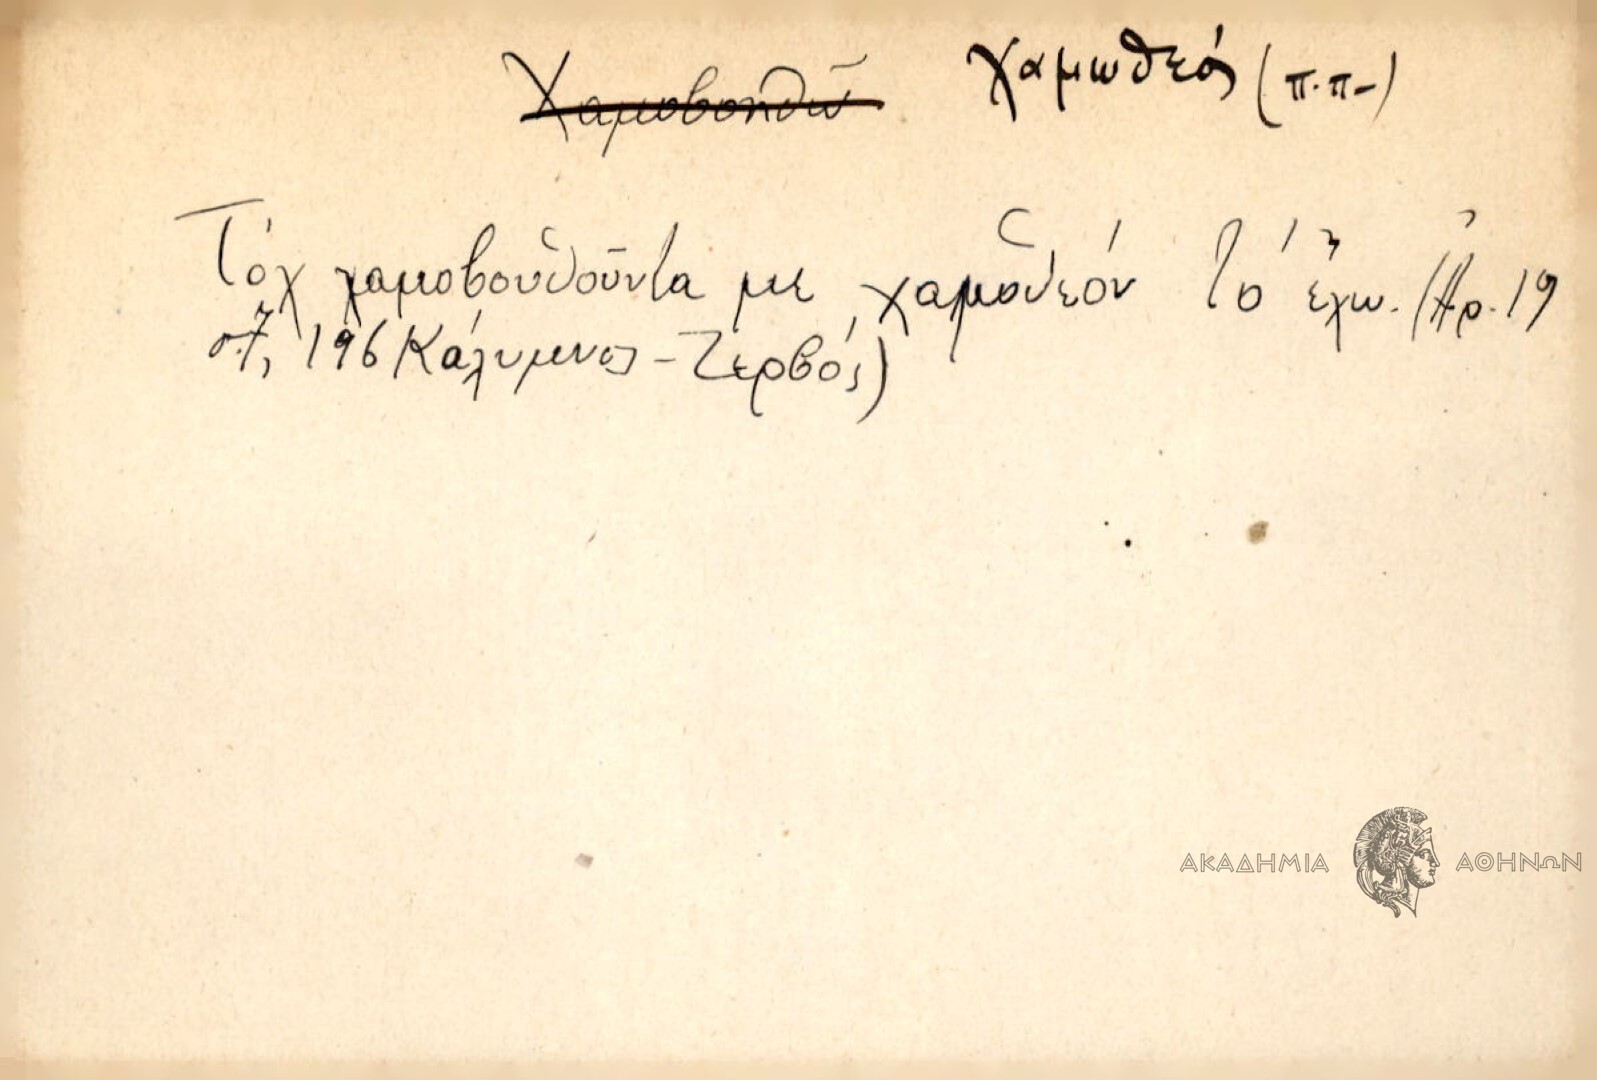 ~~Χαμοβοηθῶ~~ χαμωθεός (π.π-)
Τὸχ χαμοβουθοῦντα με χαμοθεόν το ἔχω. (Ἀρ. 19
σ. 7, 196 Κάλυμνος - Ζερβός)
ΑΚΑΔΗΜΙΑ ΑΘΗΝΩΝ